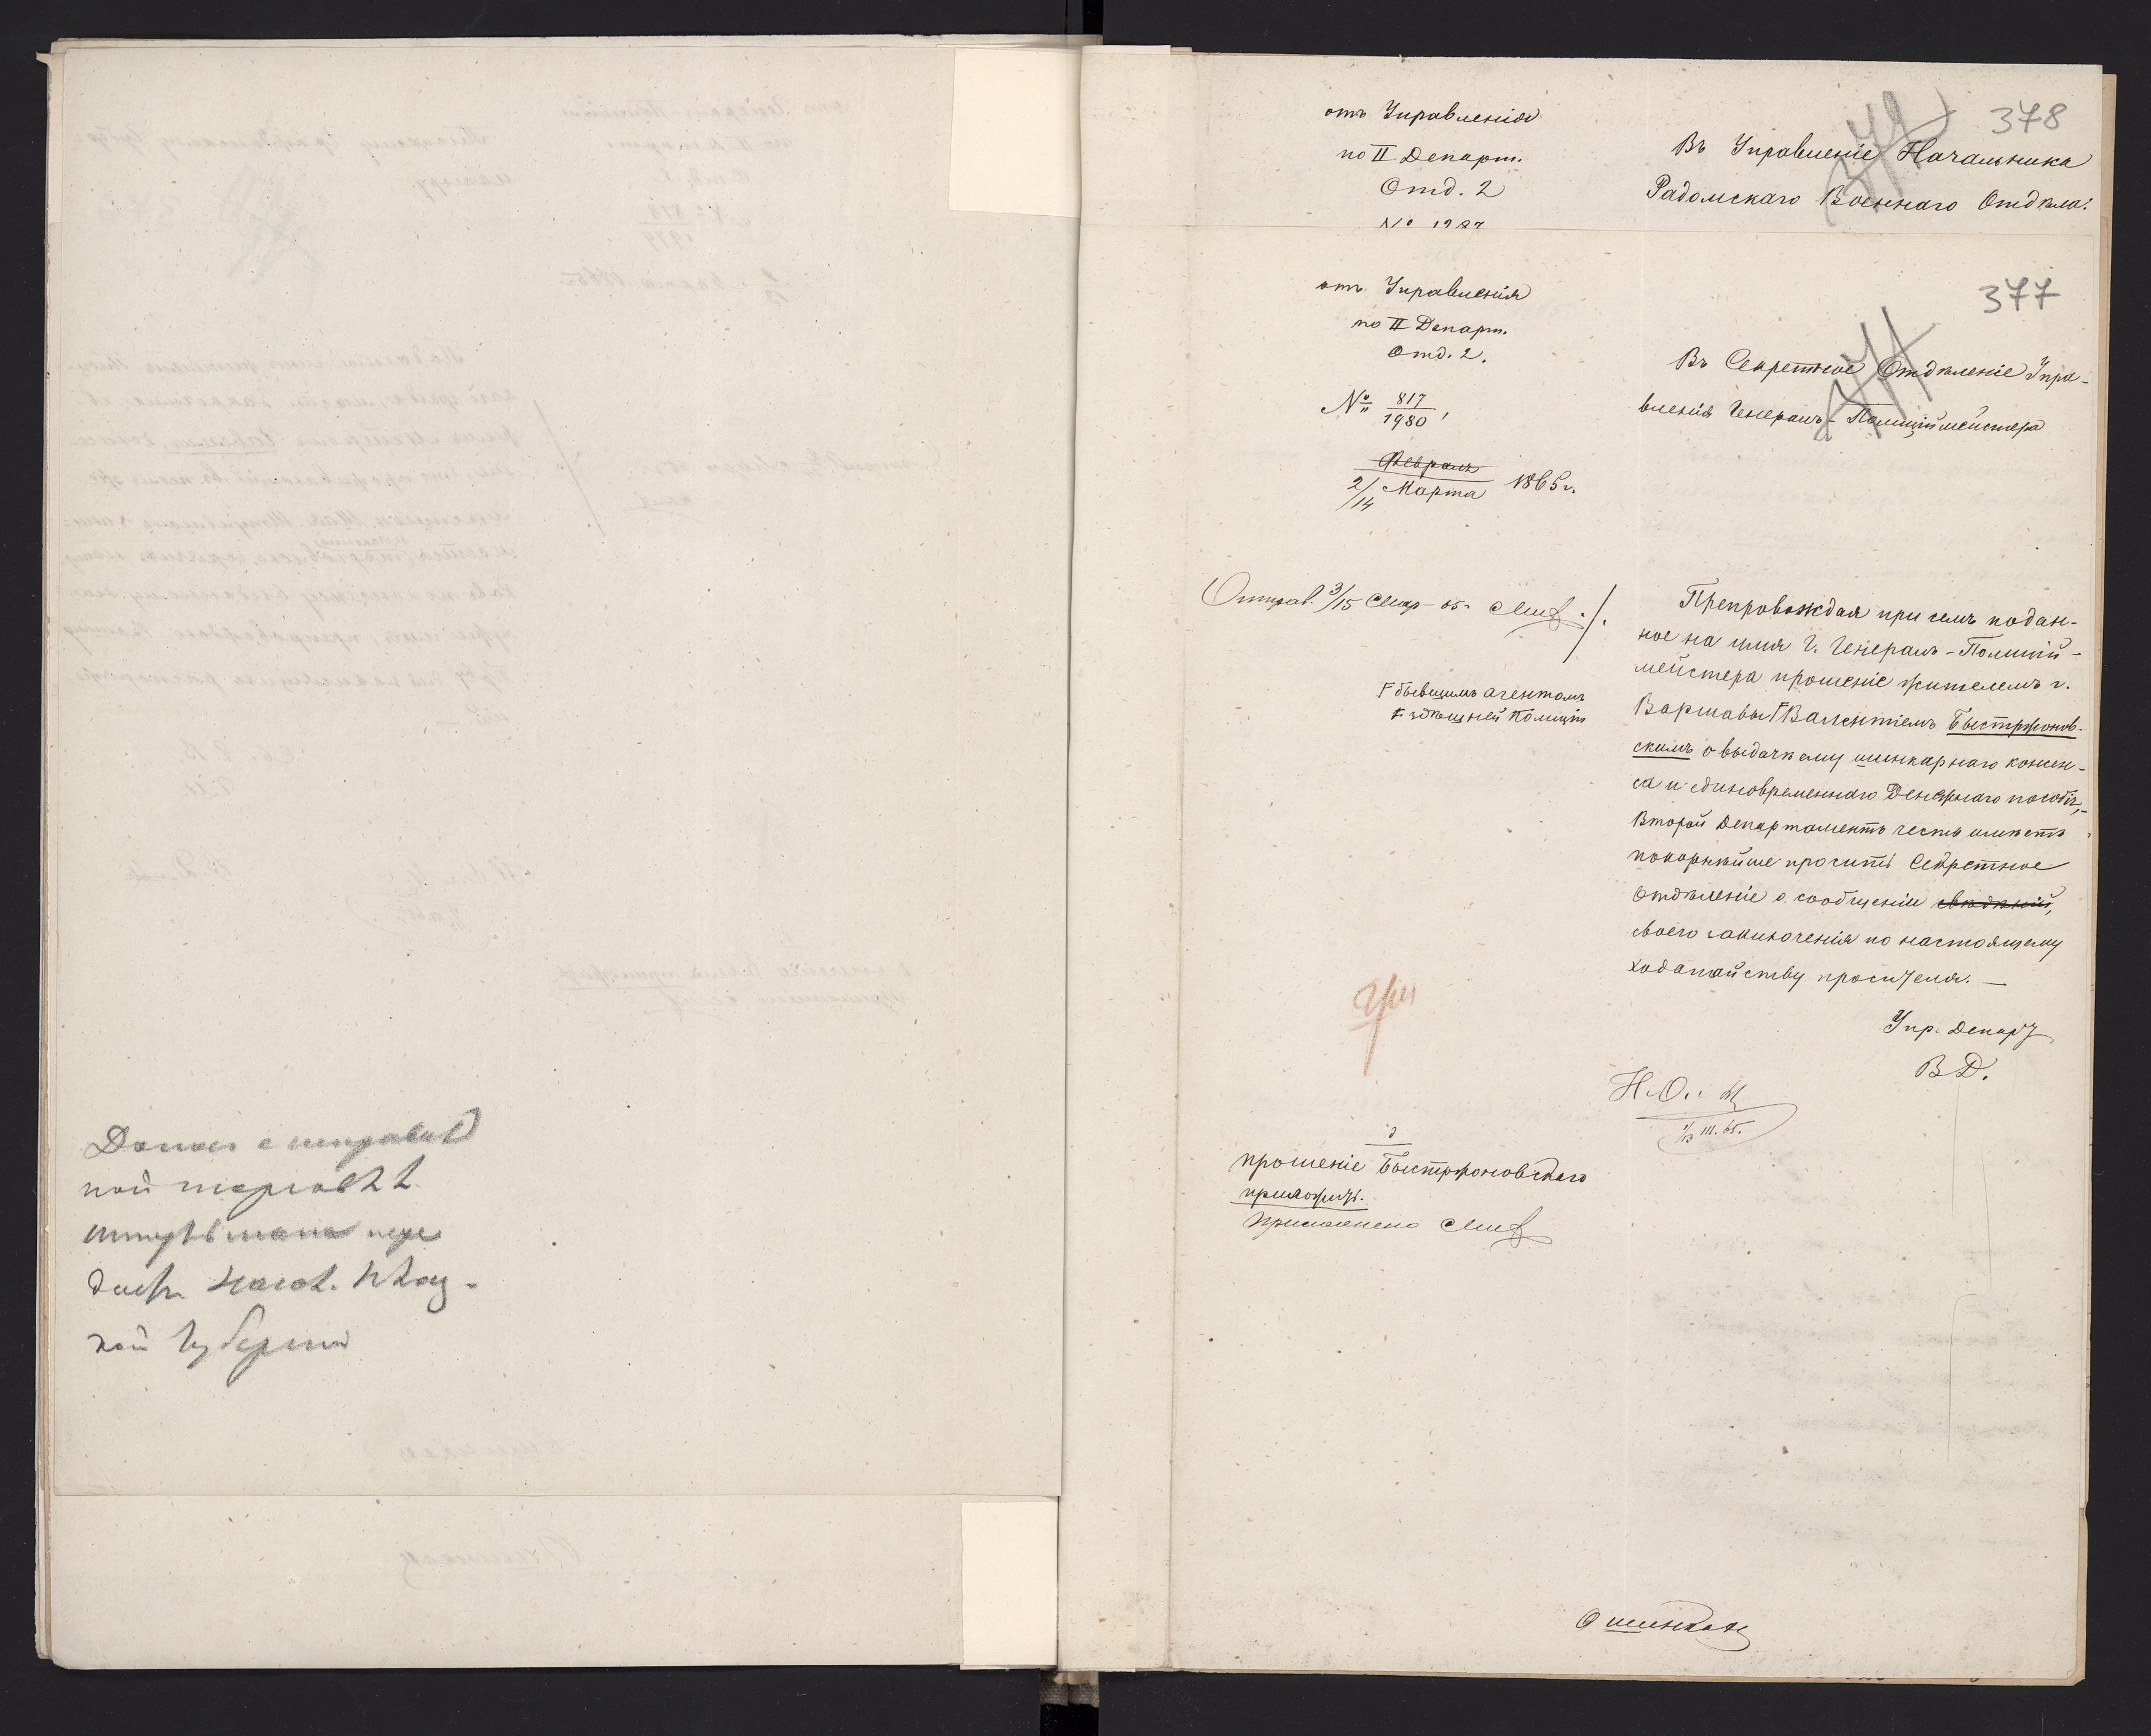 Донос о неправиль
ной торговле
Штурмана пере
дать Начал. Плоц-
кой Губерніи
отъ Управленія
по II Департ.
Отд. 2
№ 1987
378
Въ Управленіе Начальника
Радомскаго Военнаго Отдѣла.
отъ Управленія
по II Департ.
Отд. 2.
№ 817
1980
Февраля
2/14 Марта 1865 г.
377
Въ Секретное Отдѣленіе Упра-
вленія Генералъ-Полиціймейстера
Отправ. 3/15 Мар - 65.
Препровождая при семъ подан-
ное на имя Г. Генералъ-Полицій-
мейстера прошеніе жителемъ г.
Варшавы Валентіемъ Быстржонов-
скимъ о выдачѣ ему шинкарнаго консен-
са и единовременнаго денежнаго пособія,-
Второй Департаментъ честь имѣетъ
покорнѣйше просить Секретное
Отдѣленіе о сообщеніи свѣдѣній,
своего заключенія по настоящему
ходатайству просителя. —
бывшимъ агентомъ
здѣшней полиціи
Упр. Депар
В Д.
Н. О.
1/13 III. 65.
прошеніе Быстржоновскаго
приложить.
Приложено
О шинках